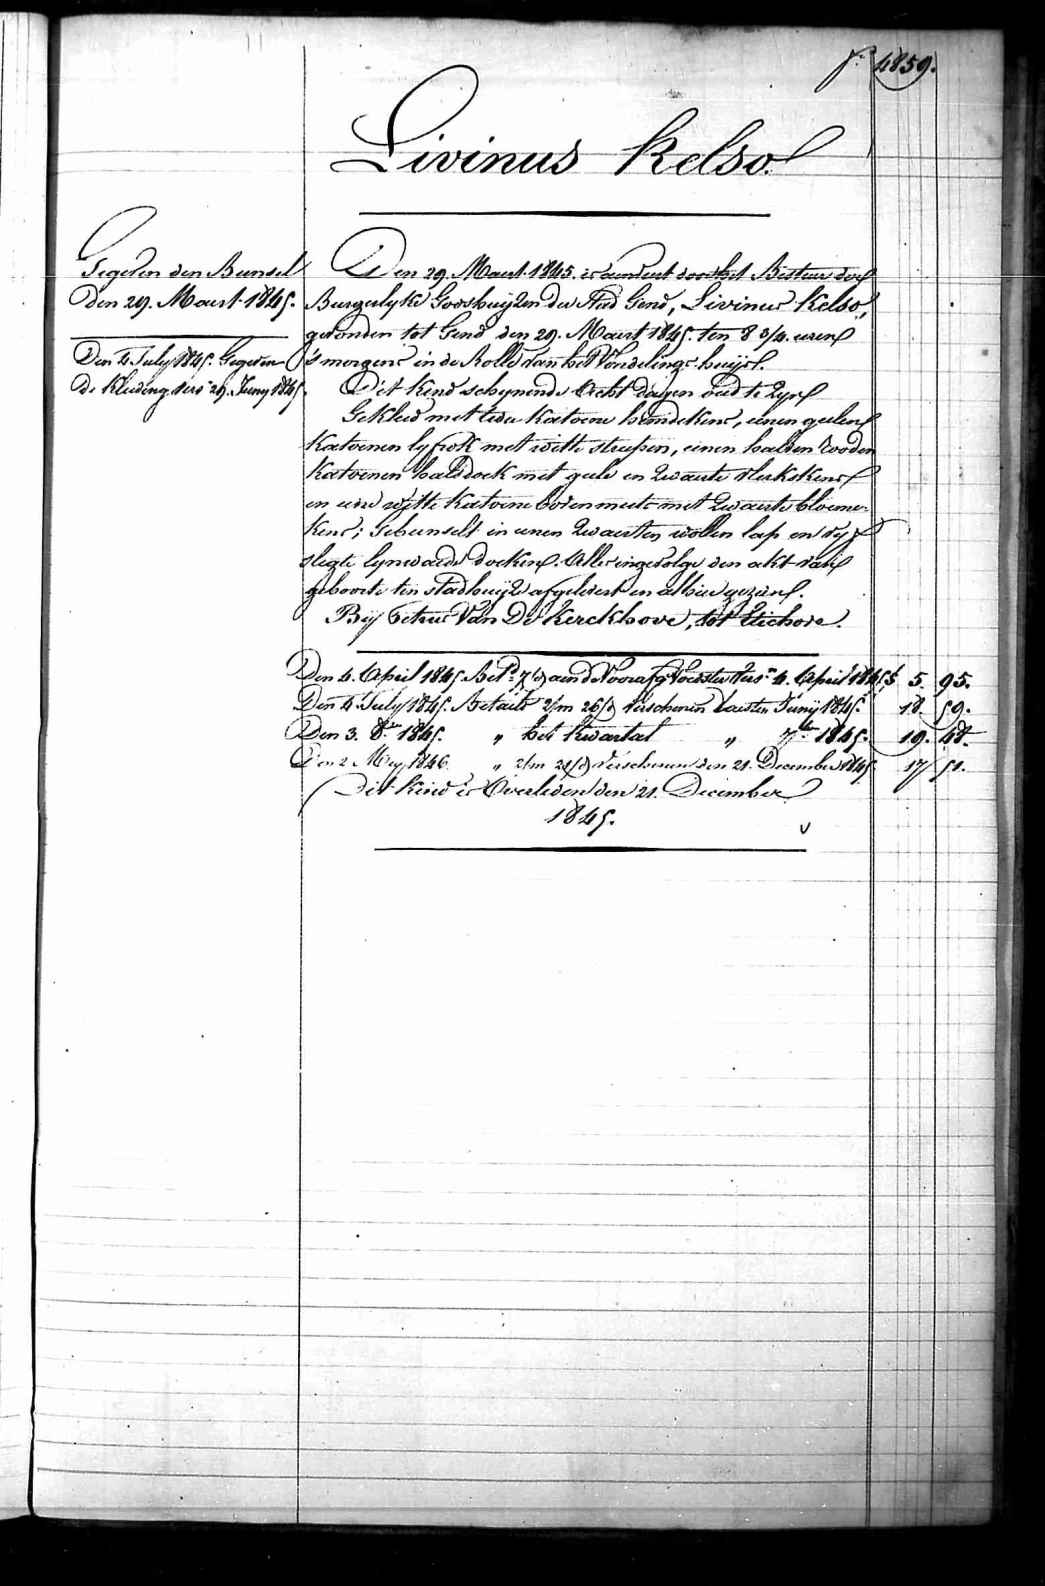 f.° 4859.
Livinus Kelso.
Gegeven den Bunsel
Den 29. Maart 1845.
Den 4 July 1845. Gegeven
De Kleding vers. 29. Juny 1845
Den 29. Maart 1845. is aenveert door het Bestuer der
Burgerlyke Godshuijzen der Stad Gend, Livinus Kelso,
gevonden tot Gend den 29. Maart 1845. ten 8 3/4 uren
's morgens in de Rolle van het Vondelings-huijs.
Dit kind schynende Acht dagen oud te zyn
Gekleed met twee katoene hemdekens, eenen geelen
katoenen lyfrok met witte streepen, eenen halven rooden
katoenen halsdoek met geele en zwarte vlekskens
en eene witte katoene bovenmuts met zwarte bloeme-
kens; Gebunselt in eenen zwarten wollen lap en vyf
slegte lynwaede doeken. Alles ingevolge den akt van
geboorte ten stadhuijze afgelevert en alhier gezien.
Bij Petrus Van De Kerckhove, tot Etichove.
Den 4. April 1845. Bet.d 7/d aen de Voorafg Voedster Vers.n 4. April 1845 5. 95.
Den 4 July 1845. Betaelt 2/m 26/d verschenen laesten Junij 1845. 18. 59.
Den 3. 8.bre 1845. " het kwartal " 7.bre 1845. 19. 48.
Den 2 Mey 1846. " 2/m 21/d verschenen den 21. December 1845. 17 51.
Dit kind is Overleden den 21. December
1845.
v